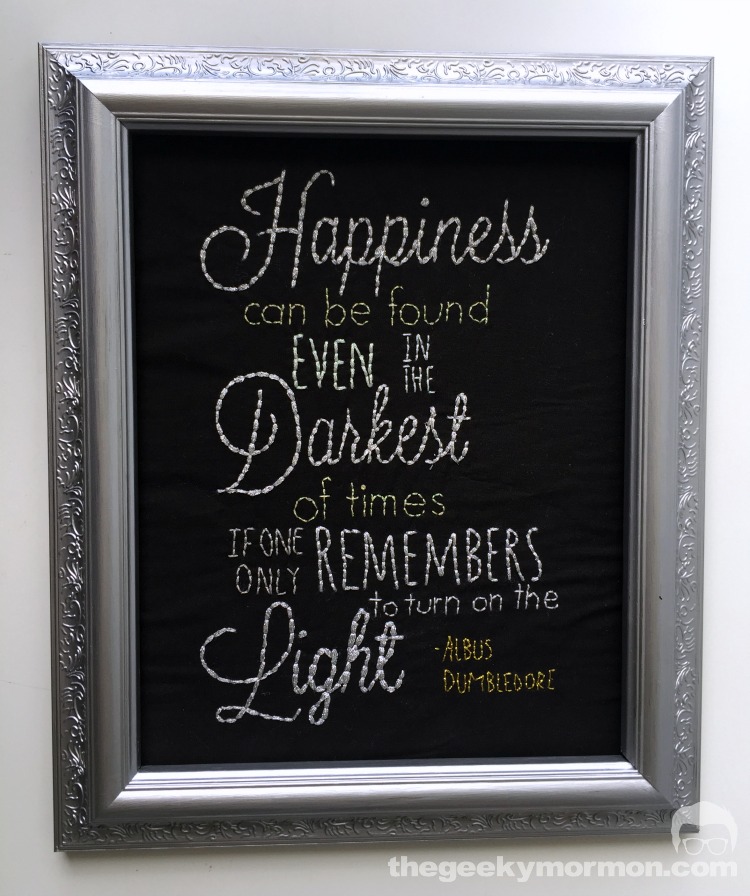 Happiness
can be found
EVEN IN THE
Darkest
of times
IF ONE ONLY REMEMBERS
to turn on the
Light
-ALBUS
DUMBLEDORE
thegeekymormon.com